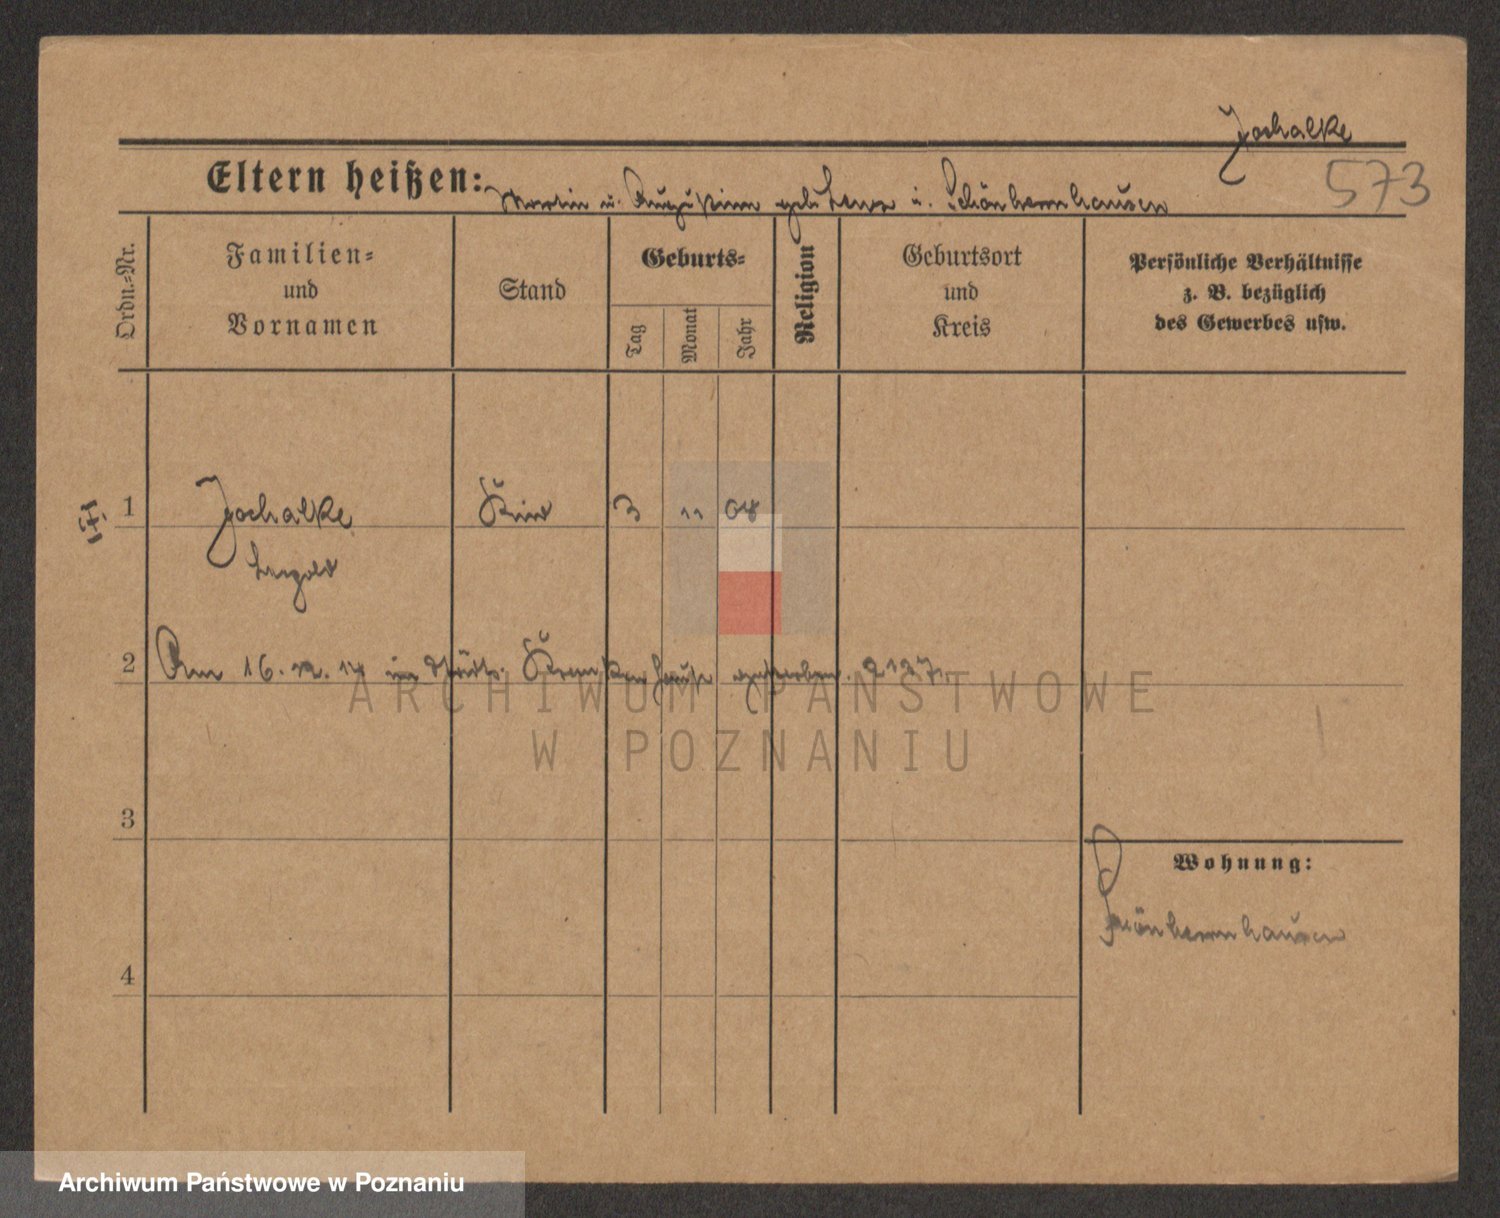 Jochalke
573
Eltern heißen: Martin u. Augustine geb. i. Schönherrnhausen
Ordn.=Nr.
Familien=
und
Vornamen
Stand
Geburts=
Tag
Monat
Jahr
Religion
Geburtsort
und
Kreis
Persönliche Verhältnisse
z. B. bezüglich
des Gewerbes usw.
1 Jochalke Kind 3 11 08
Leopold
2 Am 16. 12. 14 im Städt. Krankenhause gestorben. 2137.
3
Wohnung:
Schönherrnhausen
4
ARCHIWUM PAŃSTWOWE
W POZNANIU
Archiwum Państwowe w Poznaniu